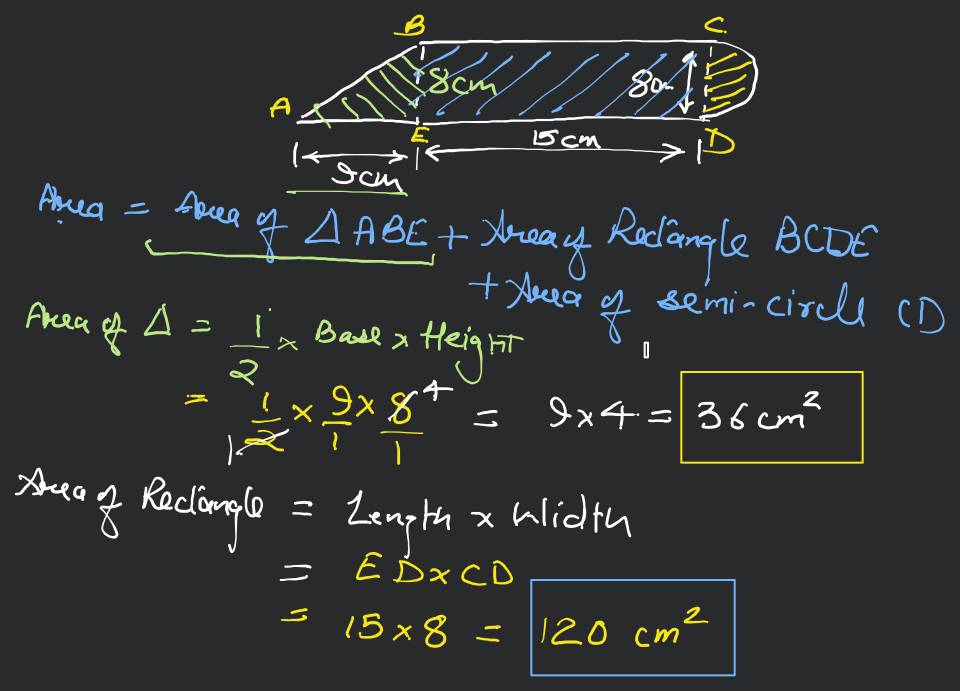 B C
8cm 8cm
A
E D
15cm
9cm
Area = Area of △ ABE + Area of Rectangle BCDE
+ Area of semi-circle CD
Area of △ = 1/2 x Base x Height
= 1/2 x 9/1 x 8/1 4 = 9x4 = 36 cm²
1
Area of Rectangle = Length x Width
= ED x CD
= 15 x 8 = 120 cm²